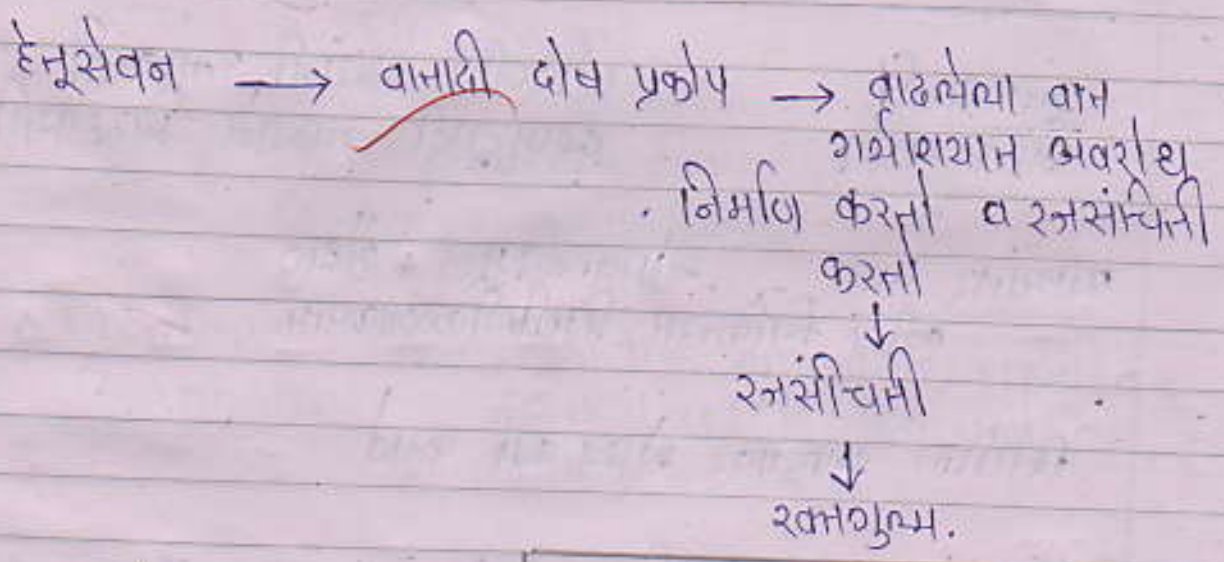 हेतूसेवन → वातादी दोष प्रकोप → वाढलेला वात
गर्भाशयात अवरोध
निर्माण करतो व रक्तसंचिती
करतो
↓
रक्तसंचिती
↓
रक्तगुल्म.